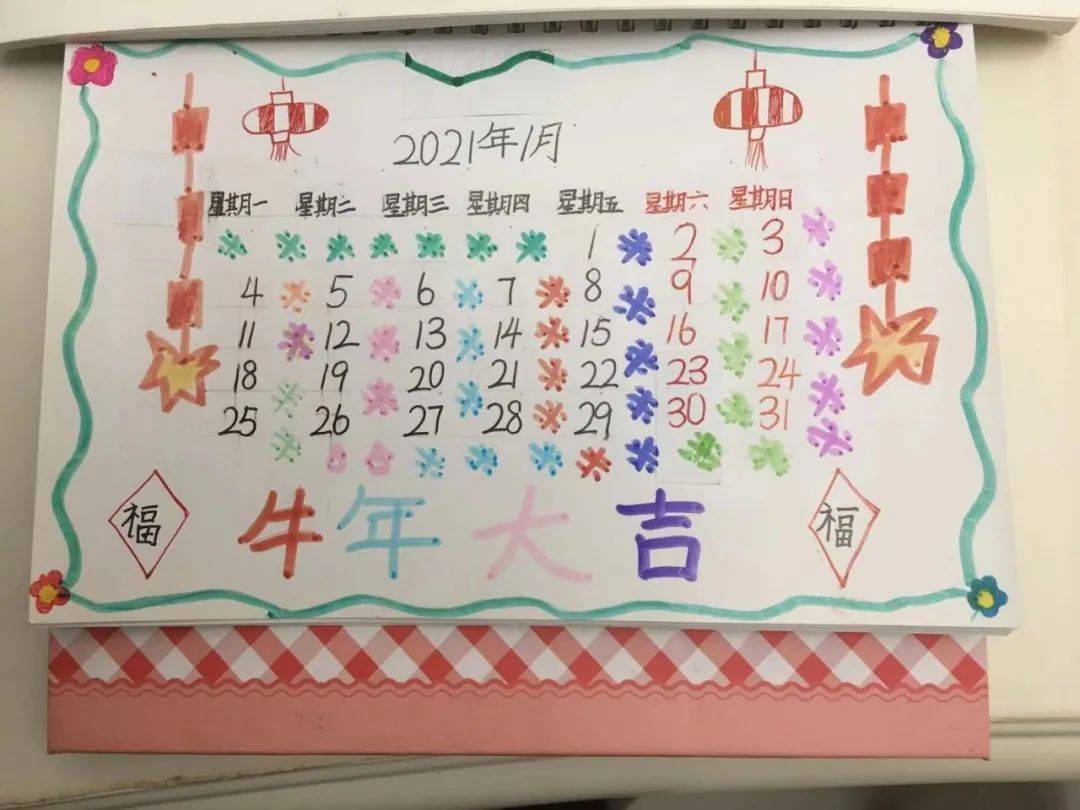 2021年1月
星期一 星期二 星期三 星期四 星期五 星期六 星期日
1 2 3
4 5 6 7 8 9 10
11 12 13 14 15 16 17
18 19 20 21 22 23 24
25 26 27 28 29 30 31
福 牛年大吉 福